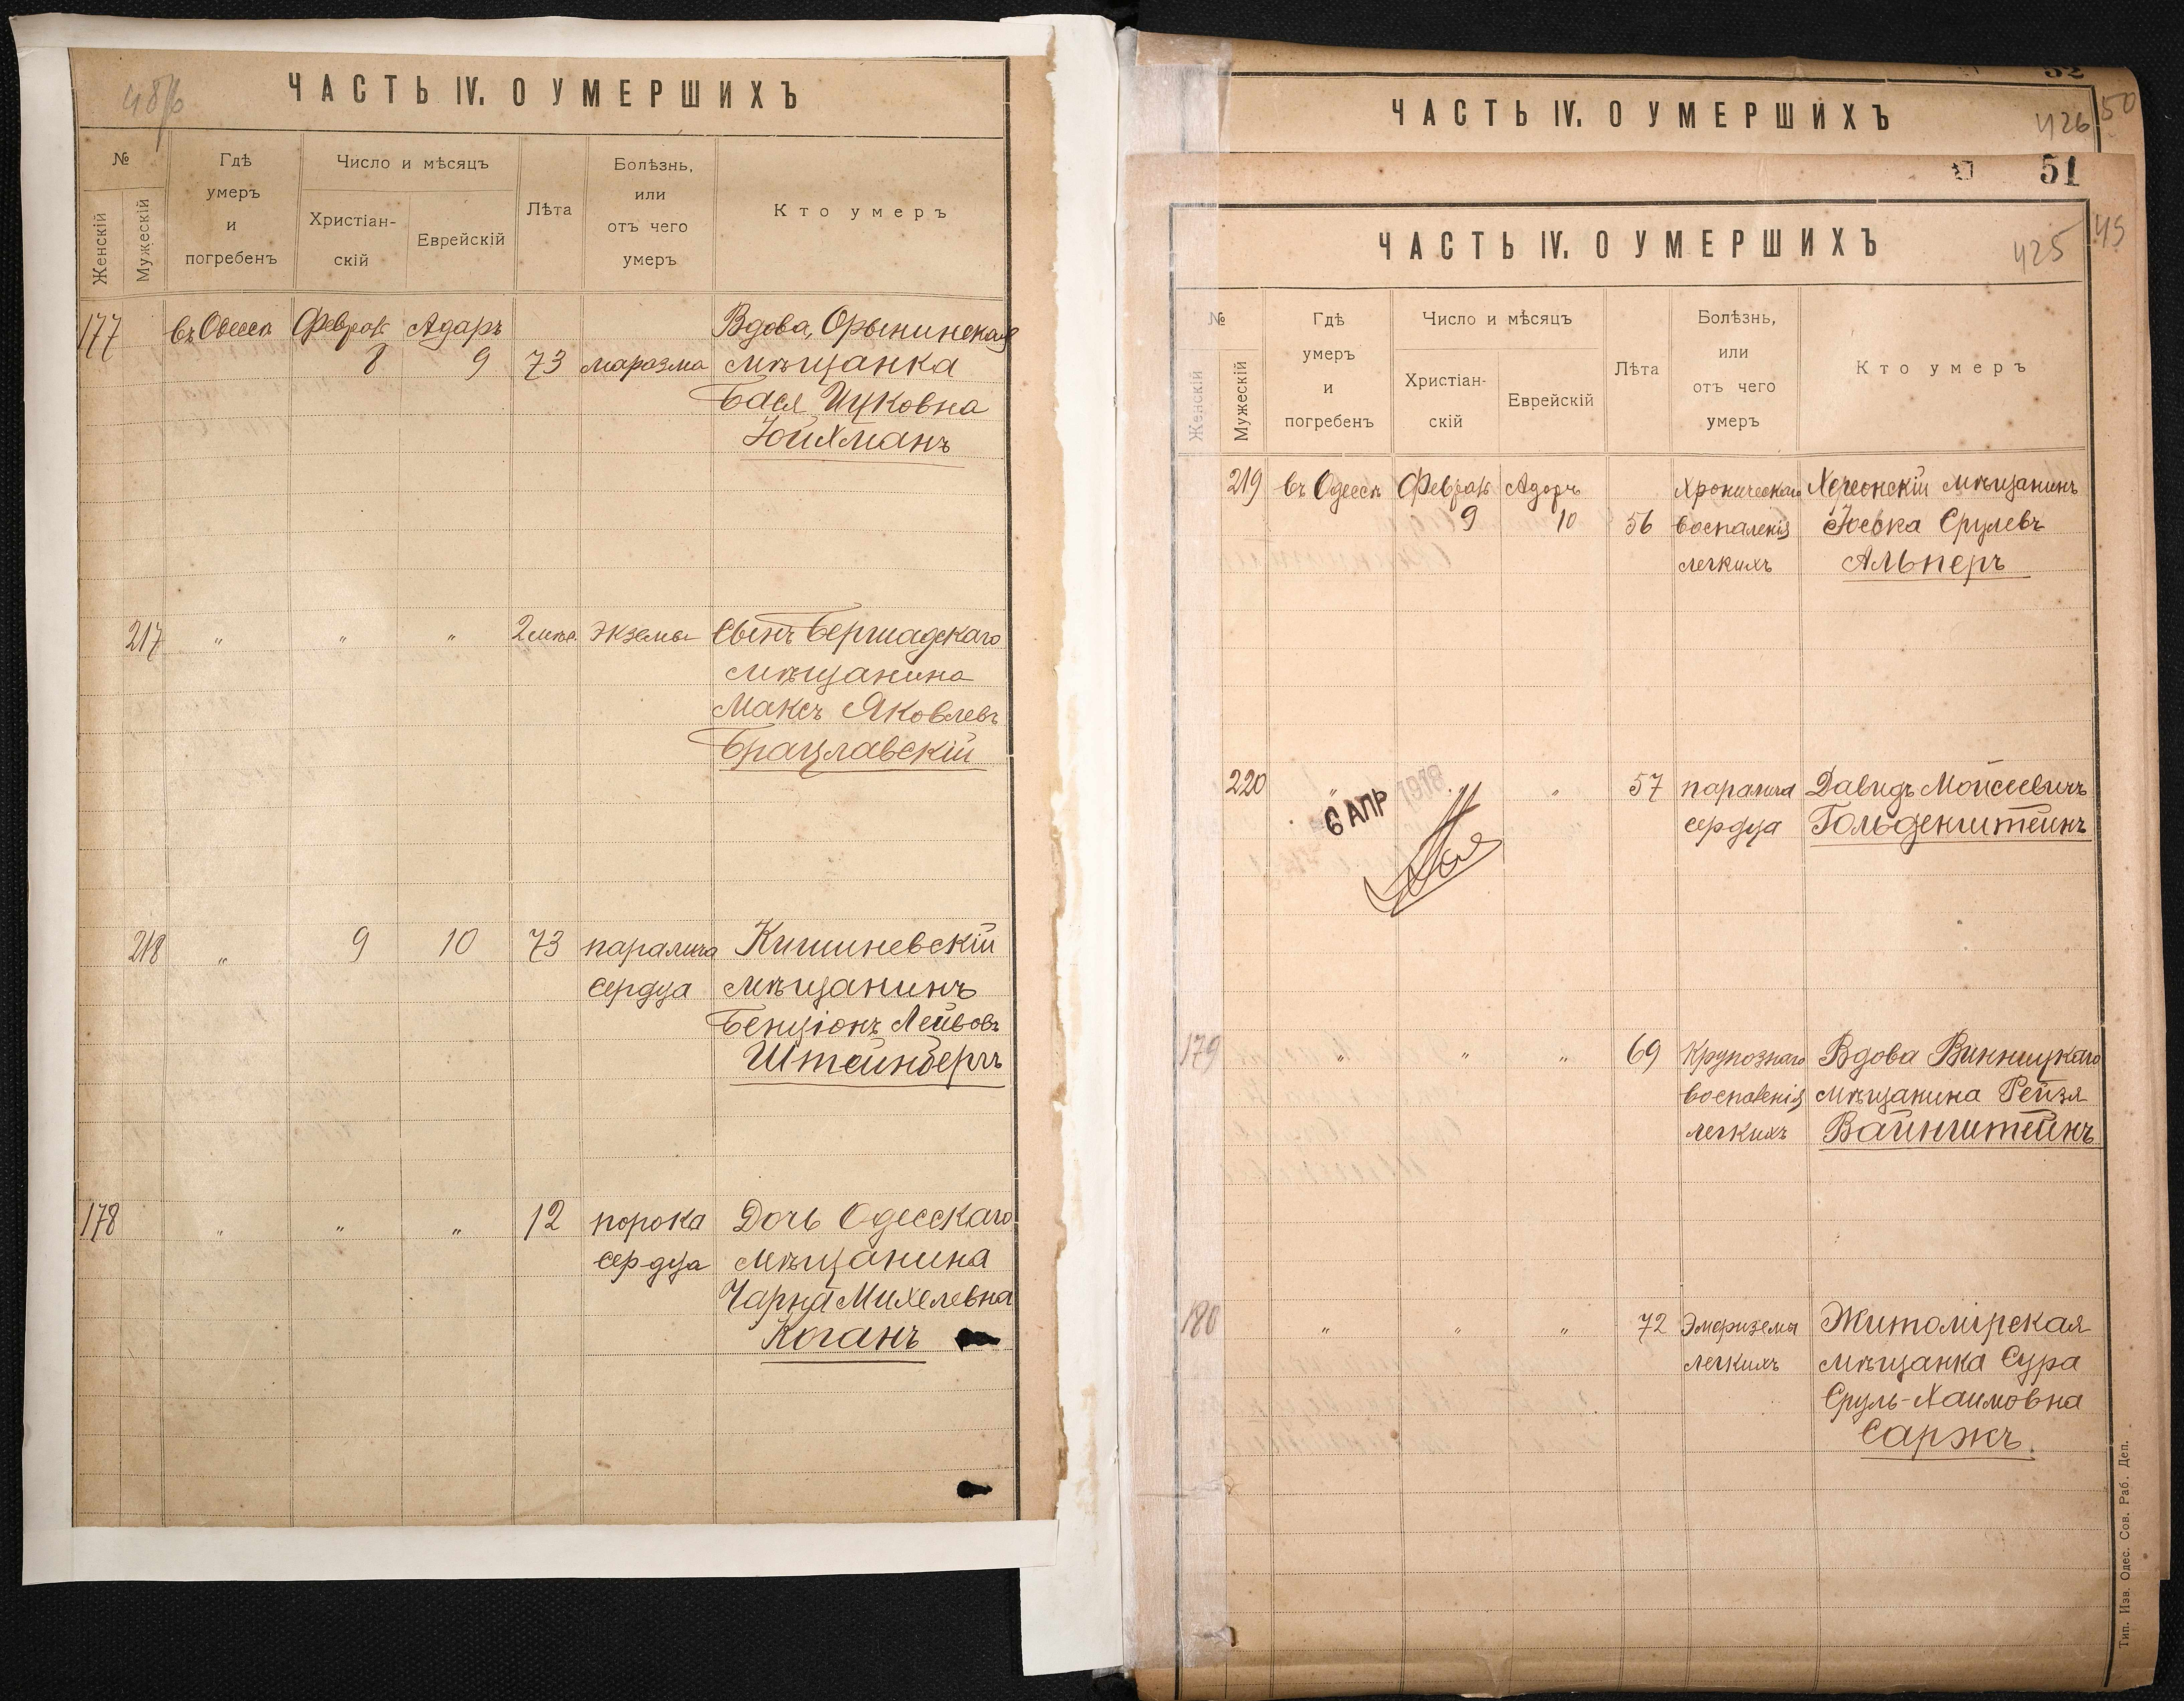 48
ЧАСТЬ IV. О УМЕРШИХЪ
№
Женскій
Мужескій
Гдѣ
умеръ
и
погребенъ
Число и мѣсяцъ
Христіан-
скій
Еврейскій
Лѣта
Болѣзнь,
или
отъ чего
умеръ
Кто умеръ
177 въ Одессѣ Феврал Адаръ Вдова, Орынинская
8 9 73 маразма мѣщанка
Бася Ицковна
Юйхманъ
217 " " " 2 мѣс. экземы Сынъ Бершадскаго
мѣщанина
Максъ Яковлевъ
Брацлавскій
218 " 9 10 73 паралича Кишиневскій
сердца мѣщанинъ
Бенціонъ Лейбовъ
Штейнбергъ
178 " " " 12 порока Дочь Одесскаго
сердца мѣщанина
Чарна Михелевна
Коганъ
52
ЧАСТЬ IV. О УМЕРШИХЪ
426 50
51
ЧАСТЬ IV. О УМЕРШИХЪ
425
№
Женскій
Мужескій
Гдѣ
умеръ
и
погребенъ
Число и мѣсяцъ
Христіан-
скій
Еврейскій
Лѣта
Болѣзнь,
или
отъ чего
умеръ
Кто умеръ
219 въ Одессѣ Феврал Адаръ Хроническаго Херсонскій мѣщанинъ
9 10 56 воспаленія Іоська Срулевъ
легкихъ Альперъ
220 " " " 57 паралича Давидъ Мойсеевичъ
сердца Гольденштейнъ
6 АПР 1918
179 " " " 69 Крупознаго Вдова Винницкаго
воспаленія мѣщанина Рейзя
легкихъ Вайнштейнъ
180 " " " 72 Эмфиземы Житомірская
легкихъ мѣщанка Сура
Сруль-Хаимовна
Саржъ.
Тип. Изв. Одес. Сов. Раб. Деп.